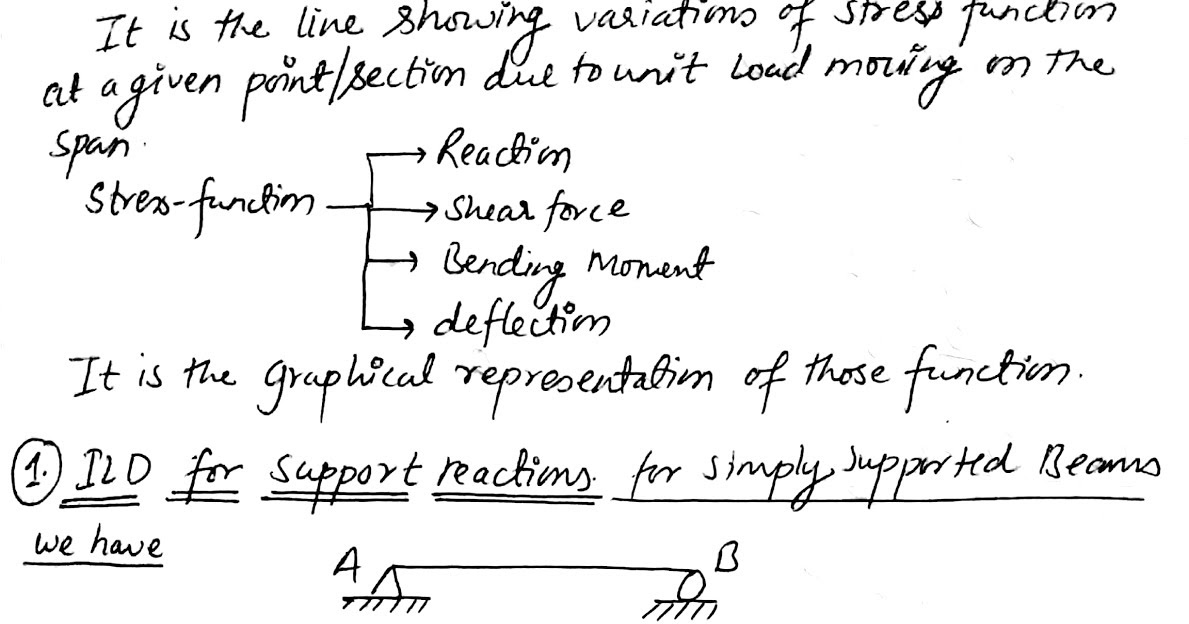 It is the line showing variations of stress function
at a given point/section due to unit load moving on the
span.
Stress-function
Reaction
Shear force
Bending Moment
deflection
It is the graphical representation of those function.
1. ILD for support reactions for simply supported Beams
we have
A B